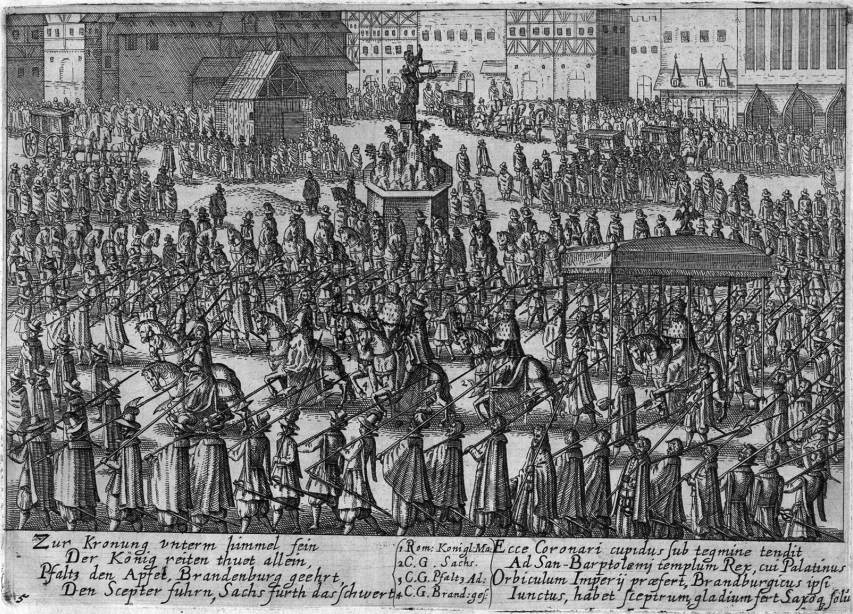 Zur Kronung vnterm himmel fein
Der König reiten thuet allein,
Pfaltz den Apfel, Brandenburg geehrt
Den Scepter führn, Sachs fürth das schwert
5
1 Rom: Konigl: Ma:
2 C. G. Sachs.
3 C. G. Pfaltz Ad:
4 C. G. Brand: ges:
Ecce Coronari cupidus sub tegmine tendit
Ad San-Bartolemj templum Rex, cui Palatinus
Orbiculum Imperij præfert, Brandburgicus ipsi
Iunctus, habet scepirum, gladium fert Saxoq solū